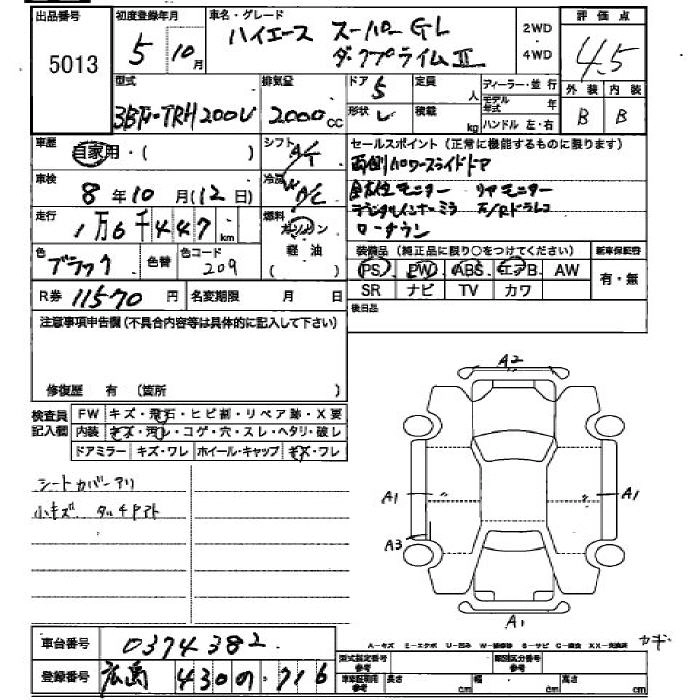 出品番号
5013
初度登録年月
5年10月
車名・グレード
ハイエース スーパーGL
ダークプライムⅡ
2WD
4WD
評価点
4.5
外装 内装
B B
型式
3BF-TRH200V
排気量
2000cc
ドア
5
形状
V
定員
人
積載
kg
ディーラー・並行
モデル年式 年
ハンドル 左・右
車歴
自家用・( )
シフト
A/T
車検
8年10月(12日)
冷房
A/C
走行
1万6千447km
燃料
ガソリン
軽油
( )
色
ブラック
色替
色コード
209
R券 11570円
名変期限 月 日
セールスポイント(正常に機能するものに限ります)
両側パワースライドドア
全方位モニター リヤモニター
デジタルインナーミラー F/Rドラレコ
ローダウン
装備品(純正品に限り○をつけてください)
PS PW ABS エアB AW
SR ナビ TV カワ
新車保証書
有・無
後日品
注意事項申告欄(不具合内容等は具体的に記入して下さい)
修復歴 有 (箇所 )
検査員記入欄
FW キズ・飛石・ヒビ割・リペア跡・X要
内装 キズ・汚レ・コゲ・穴・スレ・ヘタリ・破レ
ドアミラー キズ・ワレ ホイール・キャップ キズ・フレ
シートカバーアリ
小キズ タルチアト
A2
A1
A1
A3
A1
カギ
車台番号 0374382
登録番号 広島 430 の 716
A-キズ E-エクボ U-凹み W-補修跡 S-サビ C-腐食 XX-交換済
型式指定番号
参考
類別区分番号
参考
車検証寸法
参考
長さ cm
幅 cm
高さ cm